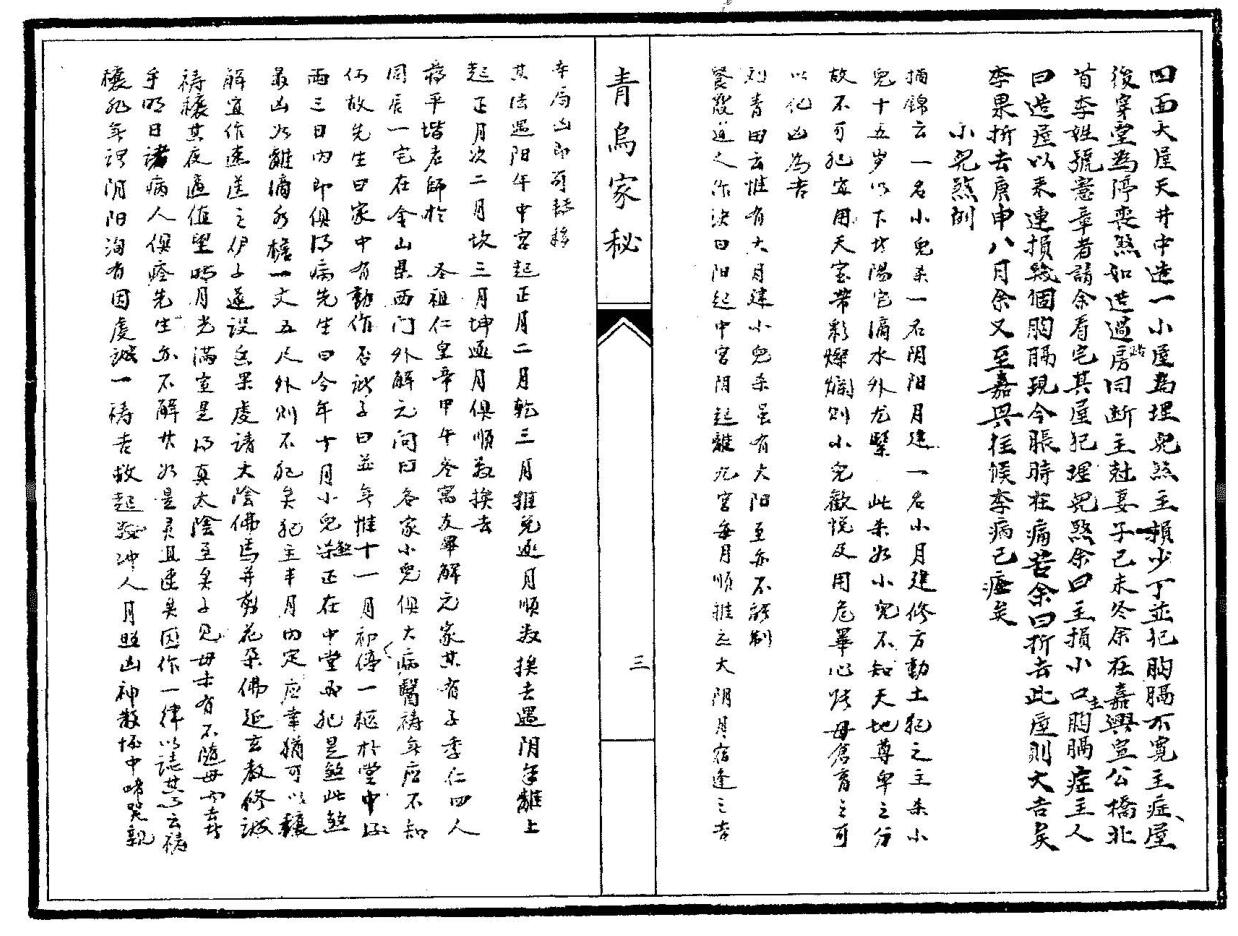 四面大屋天井中造一小屋為埋兒煞主損少丁並犯胸膈不寬主症屋
後穿堂為停喪煞如造過路房曰斷主尅妻子己未冬余在嘉興宣公橋北
首李姓號憲章者請余看宅其屋犯埋兒煞余曰主損小口主胸膈症主人
曰造屋以來連損幾個胸膈現今脹時在痛苦余曰折去此屋則大吉矣
李果折去庚申八月余又至嘉興往候李病已痊矣
小兒煞制
摘錦云一名小兒杀一名阴阳月建一名小月建修方動土犯之主杀小
兒十五岁以下坟陽宅滴水外尤緊 此杀如小兒不知天地尊卑之分
故不可犯宜用天宝带彩燦爛則小兒歡悦及用危畢心 母倉育之可
以化凶為吉
刘青田云惟有大月建小兒杀虽有太阳至亦不能制
造之作决曰阳起中宫阴起離九宫每月順推 太阴月宿逢之吉
年局凶即可 移
其法遇阳年中宫起正月二月乾三月推兌逐月順数挨去遇阴年離上
起正月次二月坎三月坤逐月俱順数挨去
蒋平堦老師於 圣祖仁皇帝甲午冬寓友畢解元家其有子季仁四人
同居一宅在金山県西门外解元问曰各家小兒俱大病醫祷無应不知
何故先生曰家中有動作否 子曰並無惟十一月初停一柩於堂中
两三日内即俱得病先生曰今年十月小兒煞正在中堂 犯是煞此煞
最凶如離滴水檐一丈五尺外則不犯矣犯主半月内定应幸猶可以禳
解宜作速送之伊子遂設 果虔請太陰佛馬并剪花朵佛延玄教修誠
祷禳其夜適值望 月光满室是得真太陰至矣子 母未有不隨母 去
乎明日諸病人俱痊先生亦不解其如是灵且速矣因作一律以誌其 云祷
禳非無謂阴阳洵有因虔誠一祷告 起 冲人月照凶神散怀中啼笑親
青烏家秘
三